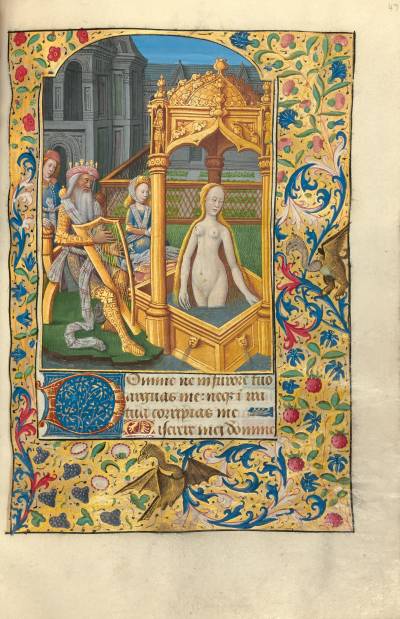 Domine ne in furore tuo
arguas me: neqꝫ ī ira
tua corripias me
Miserere mei domine